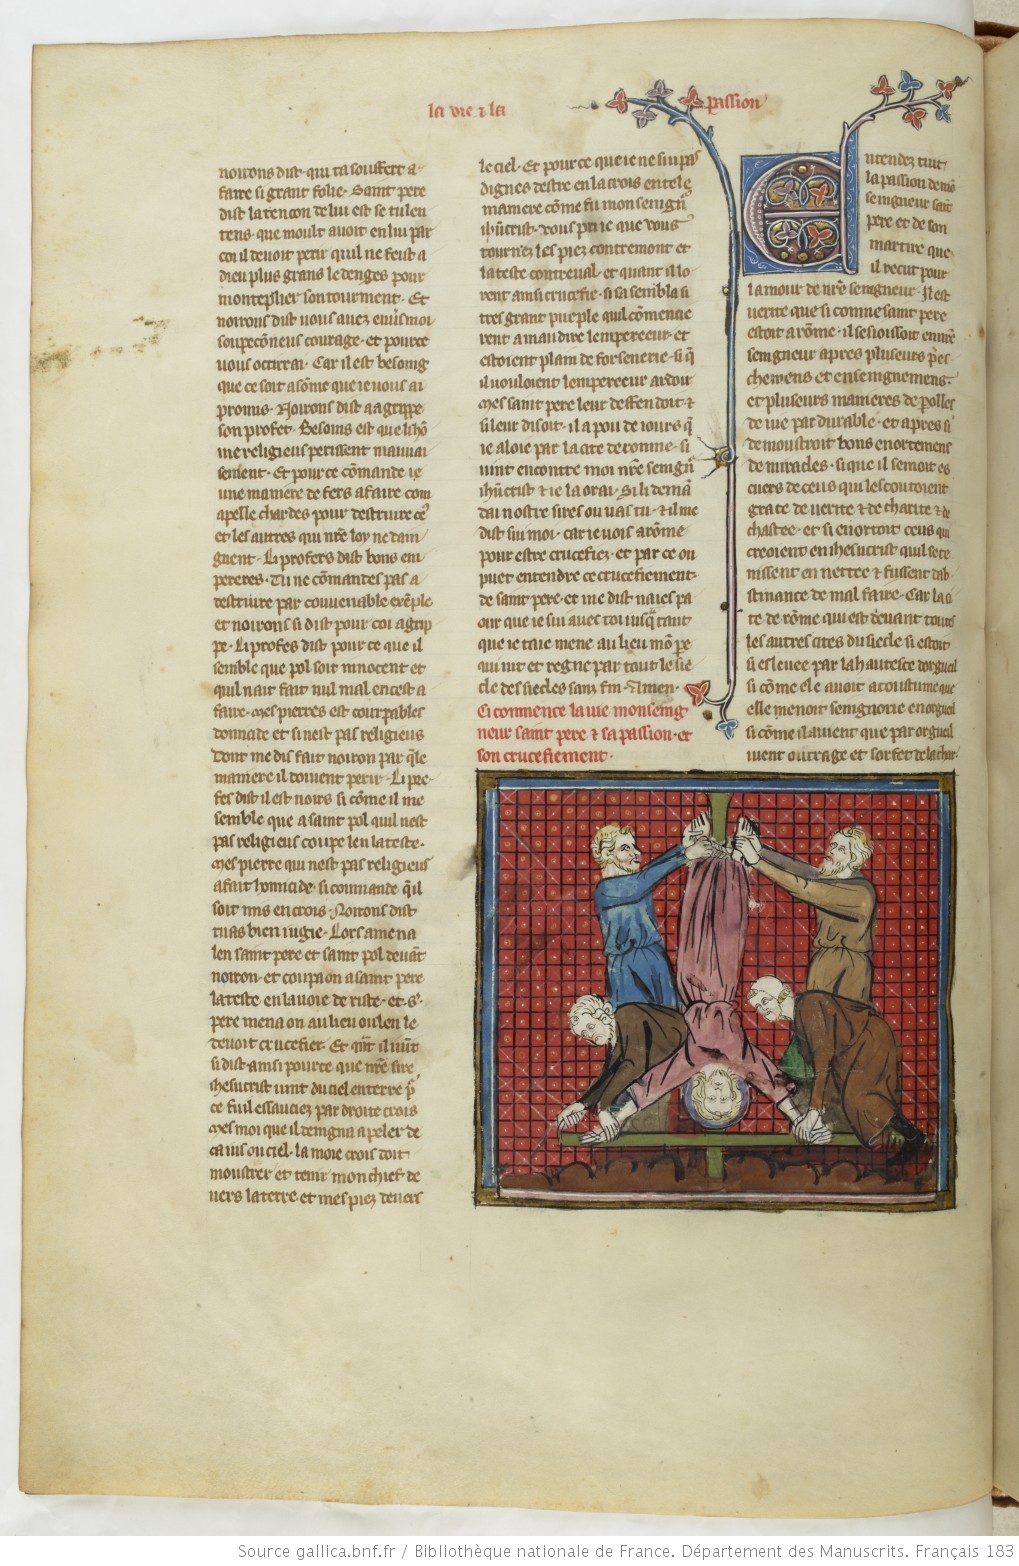 la vie ⁊ la passion
noirons dist· qui ta souffert a
faire si grant folie· Saint pere
dist la tencon de lui est se tu len
tens· que moult avoit en lui par
coi il devoit perir qu il ne feust a
dieu plus grans ledenges pour
monteplier son tourment· Et
noirons dist vous avez
courage· et pource
vous occirrai· Car il est besoing
que ce soit a some que ie vous ai
promis· Noirons dist a agrippe
son profet· Besoins est que
religieus perissent mauvai
sement· Et pource comande ie
une maniere de fers a faire com
apelle chardes pour destruire
et les autres qui nre loy ne dain
gnent· Li profers dist bons em
pereres· Tu ne comandes pas a
destruire par couvenable exemple
et noirons si dist pour coi agrip
pe· Li profes dist pour ce que il
semble que pol soit innocent et
qu il nait fait nul mal en cest a
faire· mes pierres est courpables
domicide et si nest pas religieus
Dont me dis fait noiron par qle
maniere il doivent perir· Li pro
fes dist il est voirs si come il me
semble que a saint pol qu il nest
pas religieus coupe len la teste·
mes pierre qui nest pas religieus
a fait homicide· si commande q il
soit mis en crois· Noirons dist
tu as bien iugie· Lors amena
len saint pere et saint pol devant
noiron· et coupa on a saint pere
la teste en la voie de· et· s·
pere mena on au lieu ou len le
devoit crucefier· Et qnt il vint
si dist ainsi pource que nre sire
ihesucrist vint du ciel en terre
ce fu il essauciez par droite crois
mes moi que il deingna apeler de
ca ius ou ciel· la moie crois doit
moustrer et tenir mon chief de
vers la terre et mes piez devers
le ciel· Et pour ce que ie ne sui pas
dignes destre en la crois en tele
maniere come fu mon seingnr
ihucrist· vous pri ie que vous
tournez les piez contremont et
la teste contreval· et quant il lo
rent ainsi crucefie· si sa sembla si
tres grant pueple qui comencie
rent a maudire lempereeur· et
estoient plain de forsenerie· si q
il vouloient lempereeur ardoir
mes saint pere leur deffendoit· ⁊
si leur disoit· il a pou de iours q
ie aloie par la cite de romme· si
vint encontre moi nre seingnr
ihucrist ⁊ ie laorai· Si li deman
dai nostre sires ou vas tu· ⁊ il me
dist sui moi· car ie vois a rome
pour estre crucefiez· et par ce on
puet entendre ce crucefiement·
de saint pere· et me dist naies pa
our que ie sui avec toi iusqua tant
que ie taie mene au lieu mon pere
qui vit et regne par tout le sie
cle des siecles sanz fin· Amen·
Ci commence la vie monseing
neur saint pere ⁊ sa passion· et
son crucefiement·
Entendez tuit
la passion de no
seingneur saint
pere et de son
martire que
il recut pour
lamour de nre seingneur· Il est
verite que si comme saint pere
estoit a rome· il sesioissoit en nre
seingneur apres pluseurs pes
chemens et enseingnemens·
et pluseurs manieres de paroles
de vie pardurable· et apres si
demoustroit bons enortemens
de miracles· si que il semoit es
cuers de ceus qui lescoutoient
grace de verite ⁊ de charite ⁊ de
chastee· et si enortoit ceus qui
creoient en ihesucrist quil se te
nissent en nettee ⁊ fussent dab
stinance de mal faire· Car la ci
te de rome qui est devant toutes
les autres cites du siecle si estoit
si eslevee par la hautesce dorgueil
si come ele avoit acoustume que
elle menoit seingnorie en orgueil
si come il avient que par orgueil
vient outrage et sorfet de la char·
Source gallica.bnf.fr / Bibliothèque nationale de France. Département des Manuscrits. Français 183